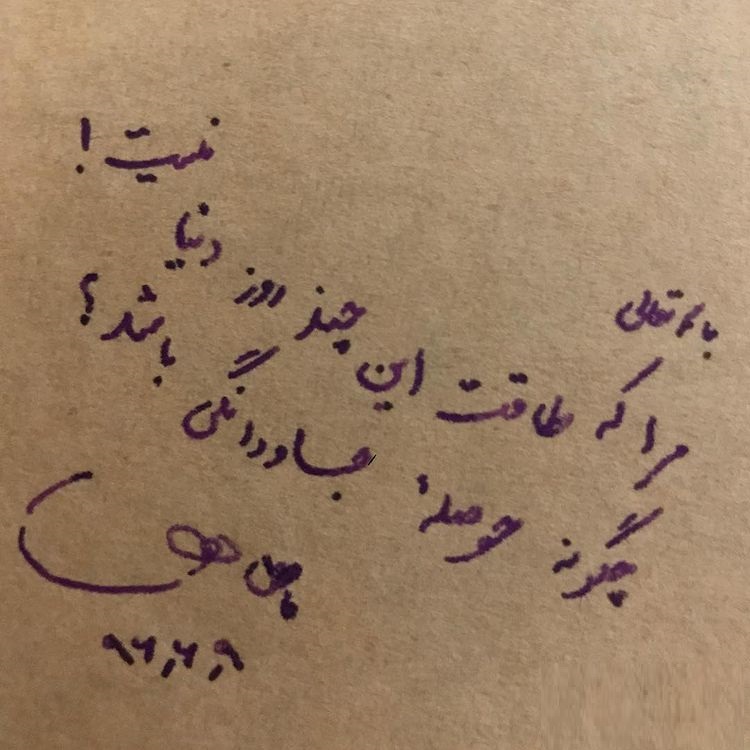 باسمه تعالی
مرا که طاقت این چند روز دنیا نیست!
چگونه حوصلهٔ جاودانگی باشد؟
فاضل
۹۶٫۶٫۹